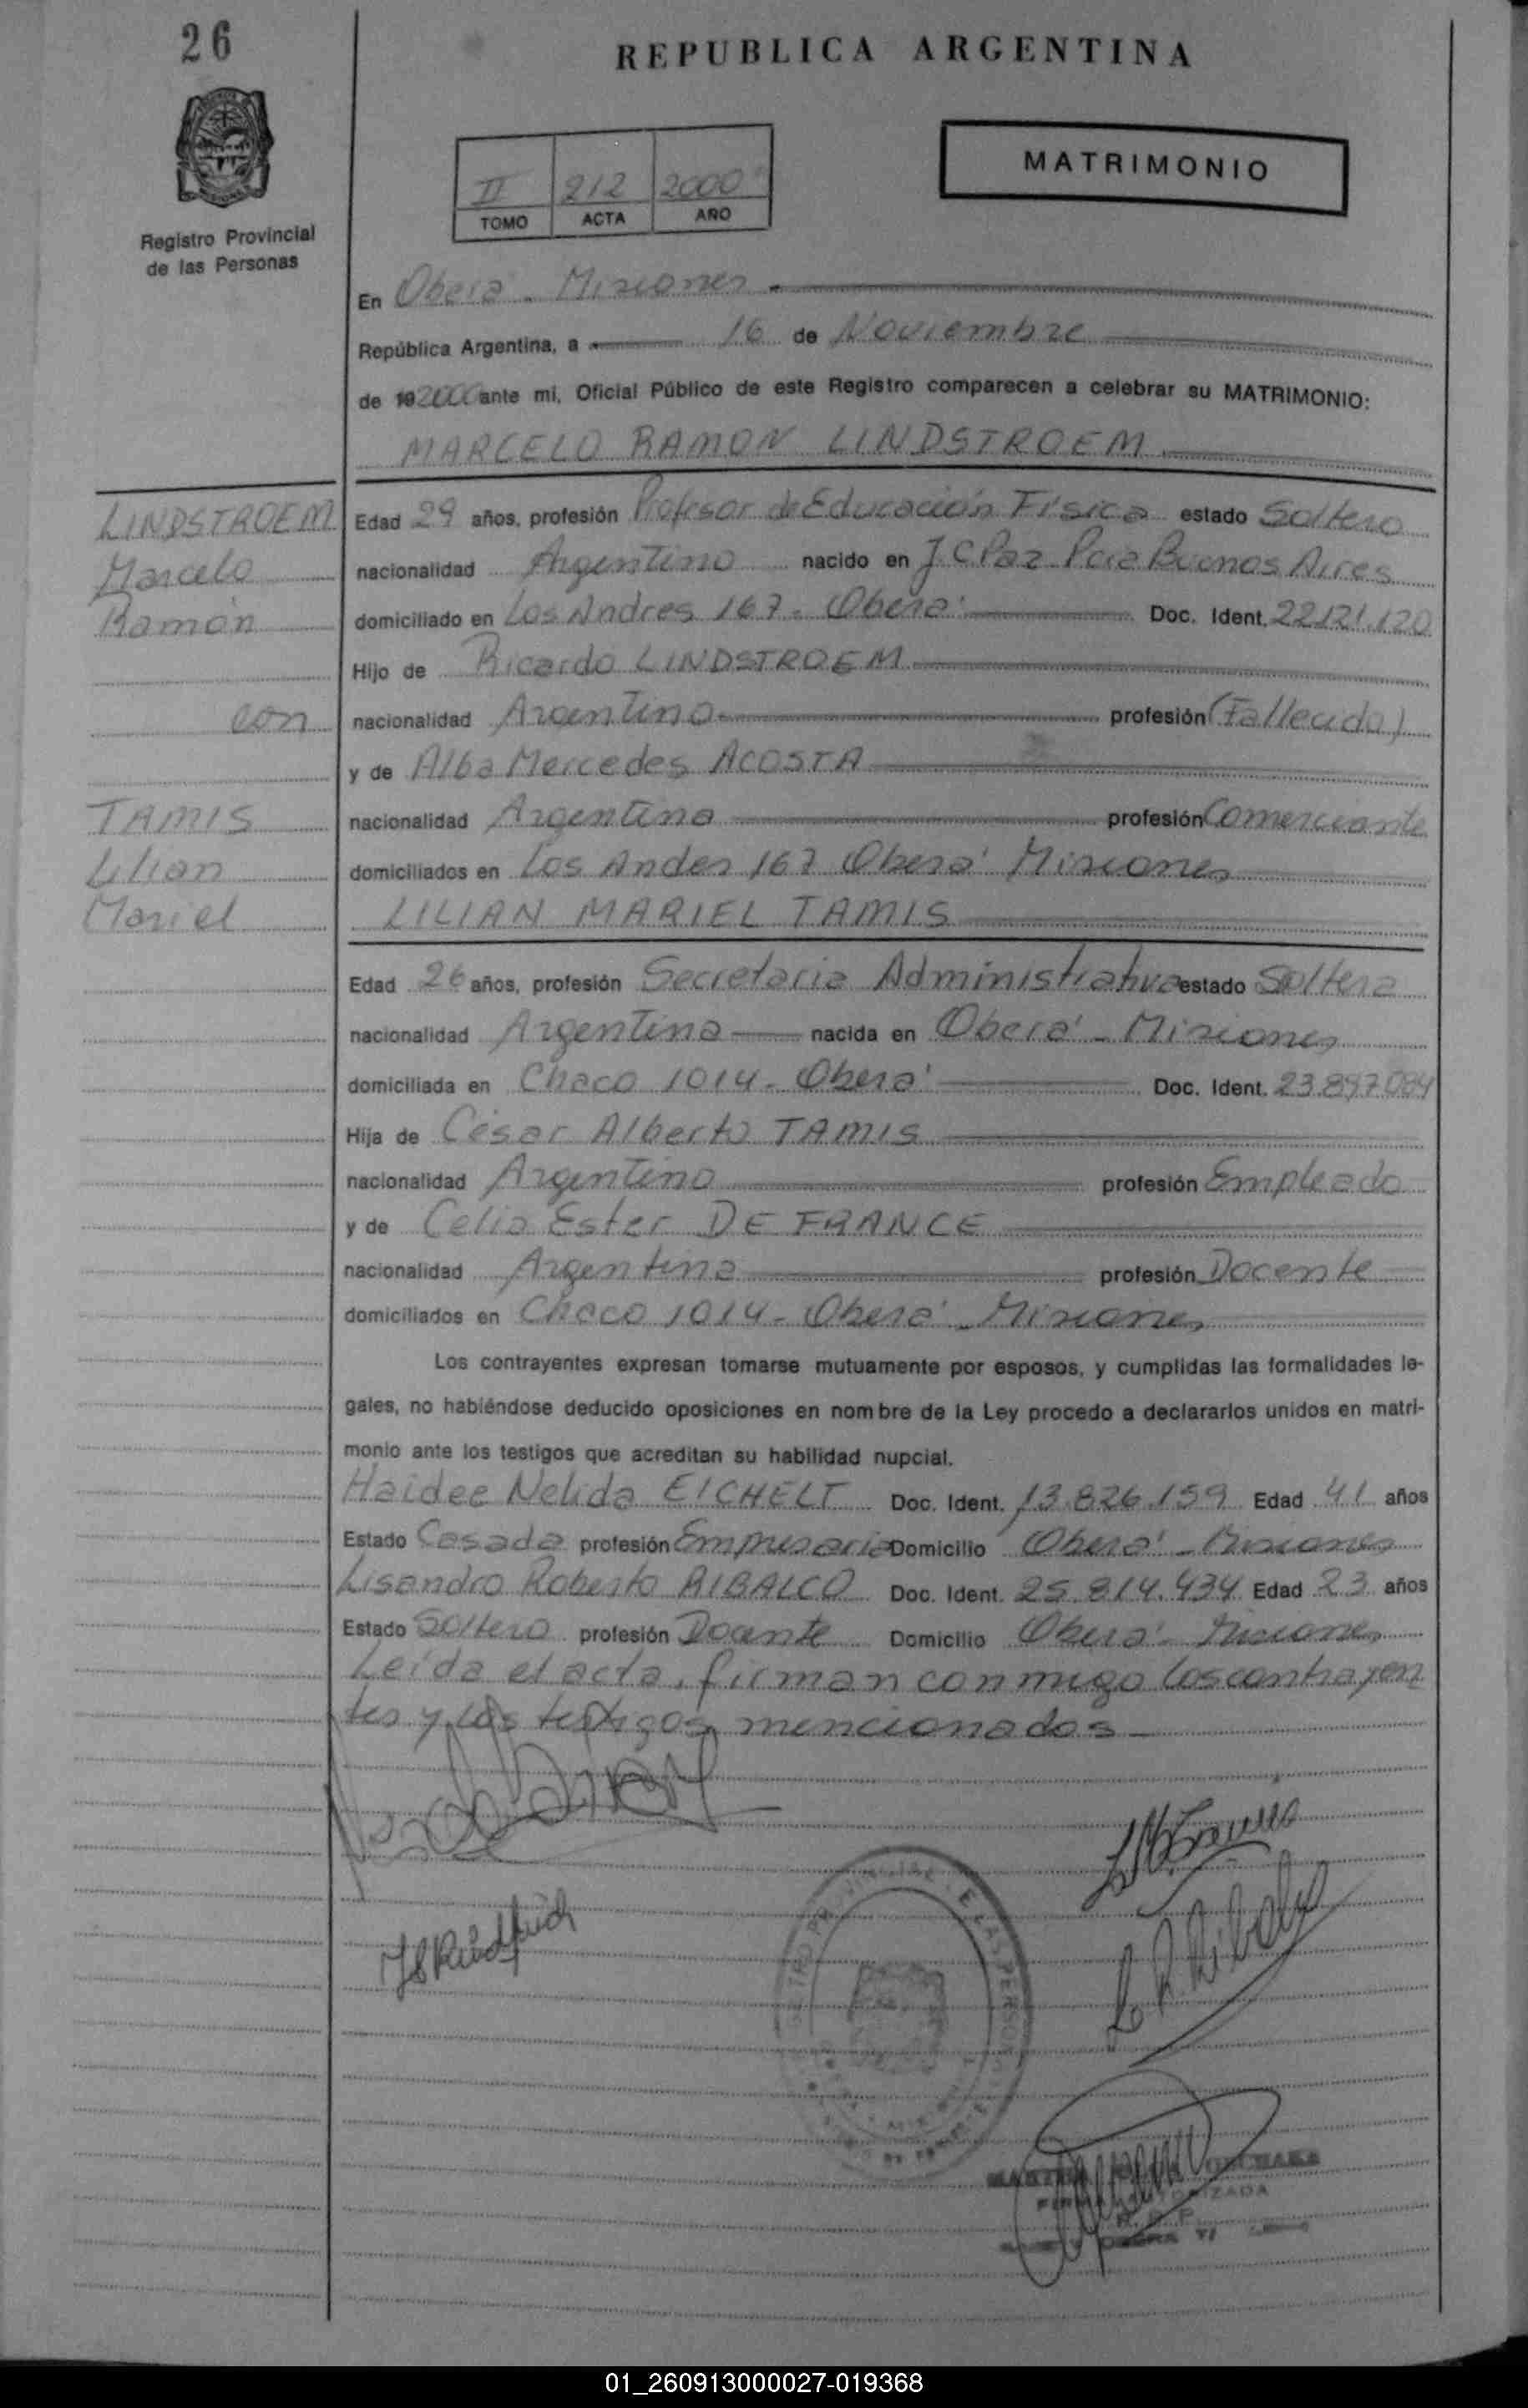 26
REPUBLICA ARGENTINA
MATRIMONIO
II 212 2000
TOMO ACTA AÑO
Registro Provincial
de las Personas
En Oberá - Misiones
República Argentina, a 16 de Noviembre
de 192000 ante mi, Oficial Público de este Registro comparecen a celebrar su MATRIMONIO:
MARCELO RAMON LINDSTROEM
LINDSTROEM
Marcelo
Ramón
con
TAMIS
Lilian
Mariel
Edad 29 años, profesión Profesor de Educación Física estado Soltero
nacionalidad Argentino nacido en J.C Paz Pcia Buenos Aires
domiciliado en Los Andres 167 - Oberá Doc. Ident. 22.121.120
Hijo de Ricardo LINDSTROEM
nacionalidad Argentino profesión (Fallecido)
y de Alba Mercedes ACOSTA
nacionalidad Argentina profesión Comerciante
domiciliados en Los Andes 167 Oberá Misiones
LILIAN MARIEL TAMIS
Edad 26 años, profesión Secretaria Administrativa estado Soltera
nacionalidad Argentina nacida en Oberá - Misiones
domiciliada en Chaco 1014 - Oberá Doc. Ident. 23.897.084
Hija de César Alberto TAMIS
nacionalidad Argentino profesión Empleado
y de Celia Ester DE FRANCE
nacionalidad Argentina profesión Docente
domiciliados en Chaco 1014 - Oberá - Misiones
Los contrayentes expresan tomarse mutuamente por esposos, y cumplidas las formalidades le-
gales, no habiéndose deducido oposiciones en nombre de la Ley procedo a declararlos unidos en matri-
monio ante los testigos que acreditan su habilidad nupcial.
Haidee Nelida EICHELT Doc. Ident. 13.826.159 Edad 41 años
Estado Casada profesión Empresaria Domicilio Oberá - Misiones
Lisandro Roberto RIBALCO Doc. Ident. 25.814.434 Edad 23 años
Estado Soltero profesión Docente Domicilio Oberá - Misiones
Leída el acta, firman conmigo los contrayen
tes y los testigos mencionados
FIRMA AUTORIZADA
01_260913000027-019368